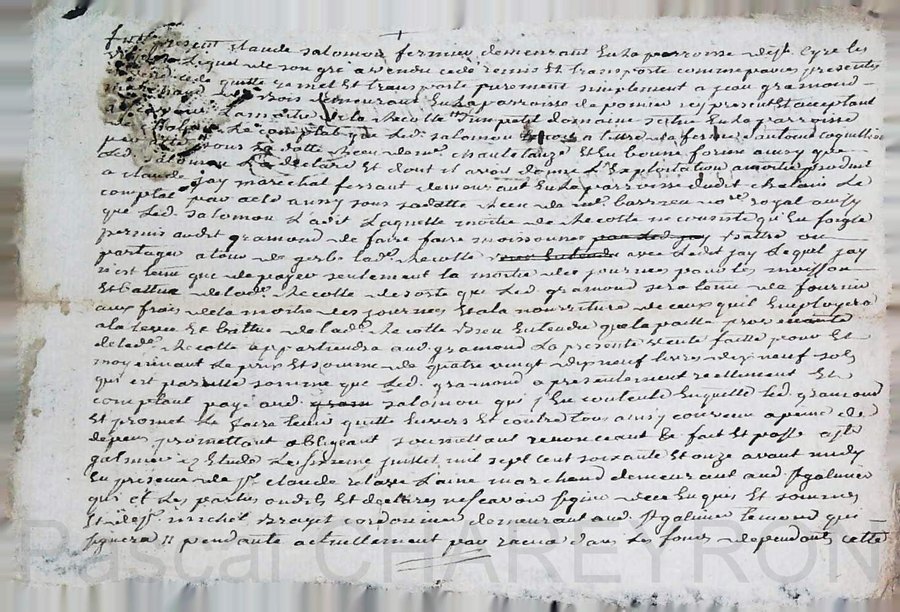 present Claude Salomon fermier demeurant en la parroisse de st Cyre les
lequel de son gré a vendu cedé remis et transporté comme par ces presentes
vend cede quitte remet et transporte purement simplement a jean gramond
demeurant en la parroisse de pomier icy present et acceptant
la moitié de la recolte d'un petit domaine scitué en la parroisse
que led. Salomon tient a titre de ferme
sous sa datte receu de me. chantelauze et en bonne forme ainsy que
led. Salomon l'a declaré et dont il avoit donné l'exploitation a moitié produit
a claude jay marechal ferrant demeurant en la parroisse dudit chalain le
comptal par acte aussy sous sa datte receu de me. barrieu nore. royal aussy
que led. Salomon l'a dit laquelle moitié de recolte ne consiste qu'en
permis audit gramond de faire faire moissonner <s>par led. jay</s> battre ou
partager a la gerbe lade. recolte avec ledit jay lequel jay
n'est tenu que de payer seulement la moitié des journés pour les moisson
et battue de lade. recolte de sorte que led. gramond sera tenu de fournir
aux frais de la moitié des journés et a la nourriture de ceux qu'il employera
a la levée et battue de lade. recolte bien entendu que la paille provenante
de lade. recolte appartiendra aud. gramond la presente vente faitte pour et
moyennant le prix et somme de quatre vingt dix neuf livres dix neuf sols
qui est pareille somme que led. gramond a presentement reellement et
comptant payé aud. <s>gram</s> Salomon qui s'en contente en quitte led. gramond
et promet le faire tenir quitte envers et contre tous ainsy convenu a peine de
depens promettant obligeant soumettant renonceant &c fait et passé a st
galmier ez etude le sixieme juillet mil sept cent soixante et onze avant midy
en presence de sr. claude relave l'ainé marchand demeurant aud. st galmier
qui et les parties ont dit et declarés ne scavoir signer de ce enquis et sommés
et de sr. michel Brouet cordonnier demeurant aud. st galmier temoin qui
signera // pendante actuellement par racine dans les fonds dependants cette
Pascal CHAREYRON